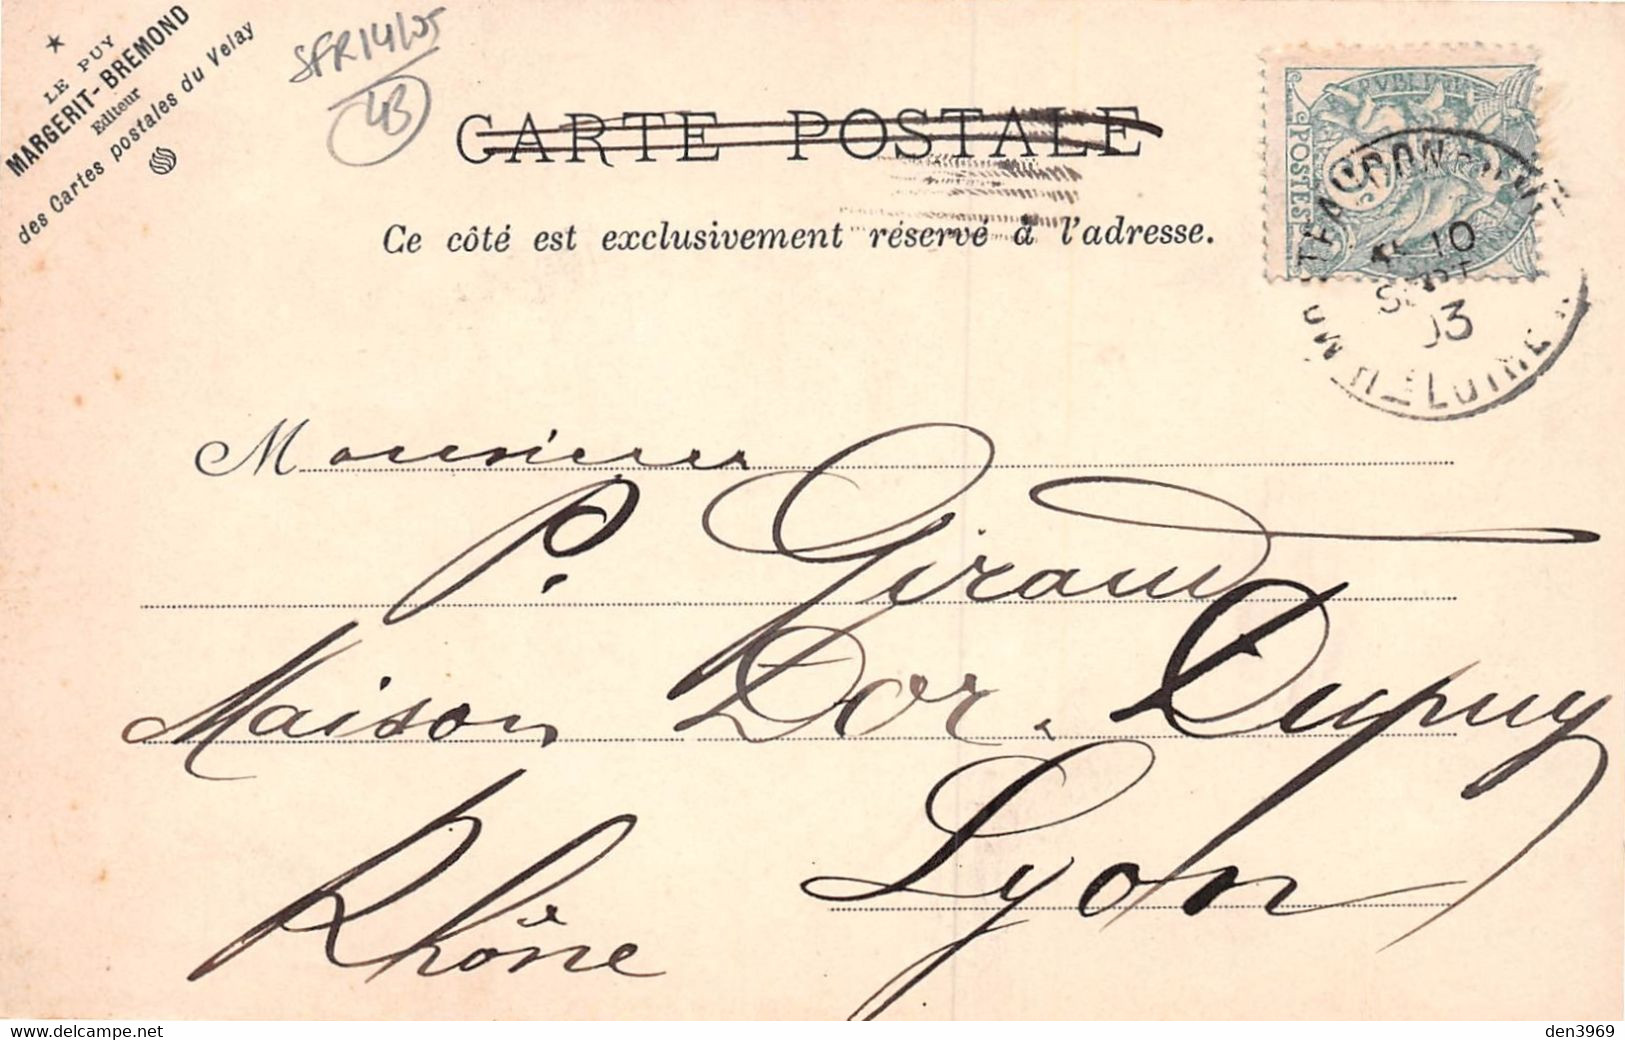 LE PUY
MARGERIT-BREMOND
Editeur
des Cartes postales du Velay
43
CARTE POSTALE
Ce côté est exclusivement réservé à l'adresse.
POSTES
10
SEPT
03
Monsieur
P. Giraud
Maison Dor. Dupuy
Lyon
Rhône
www.delcampe.net
den3969